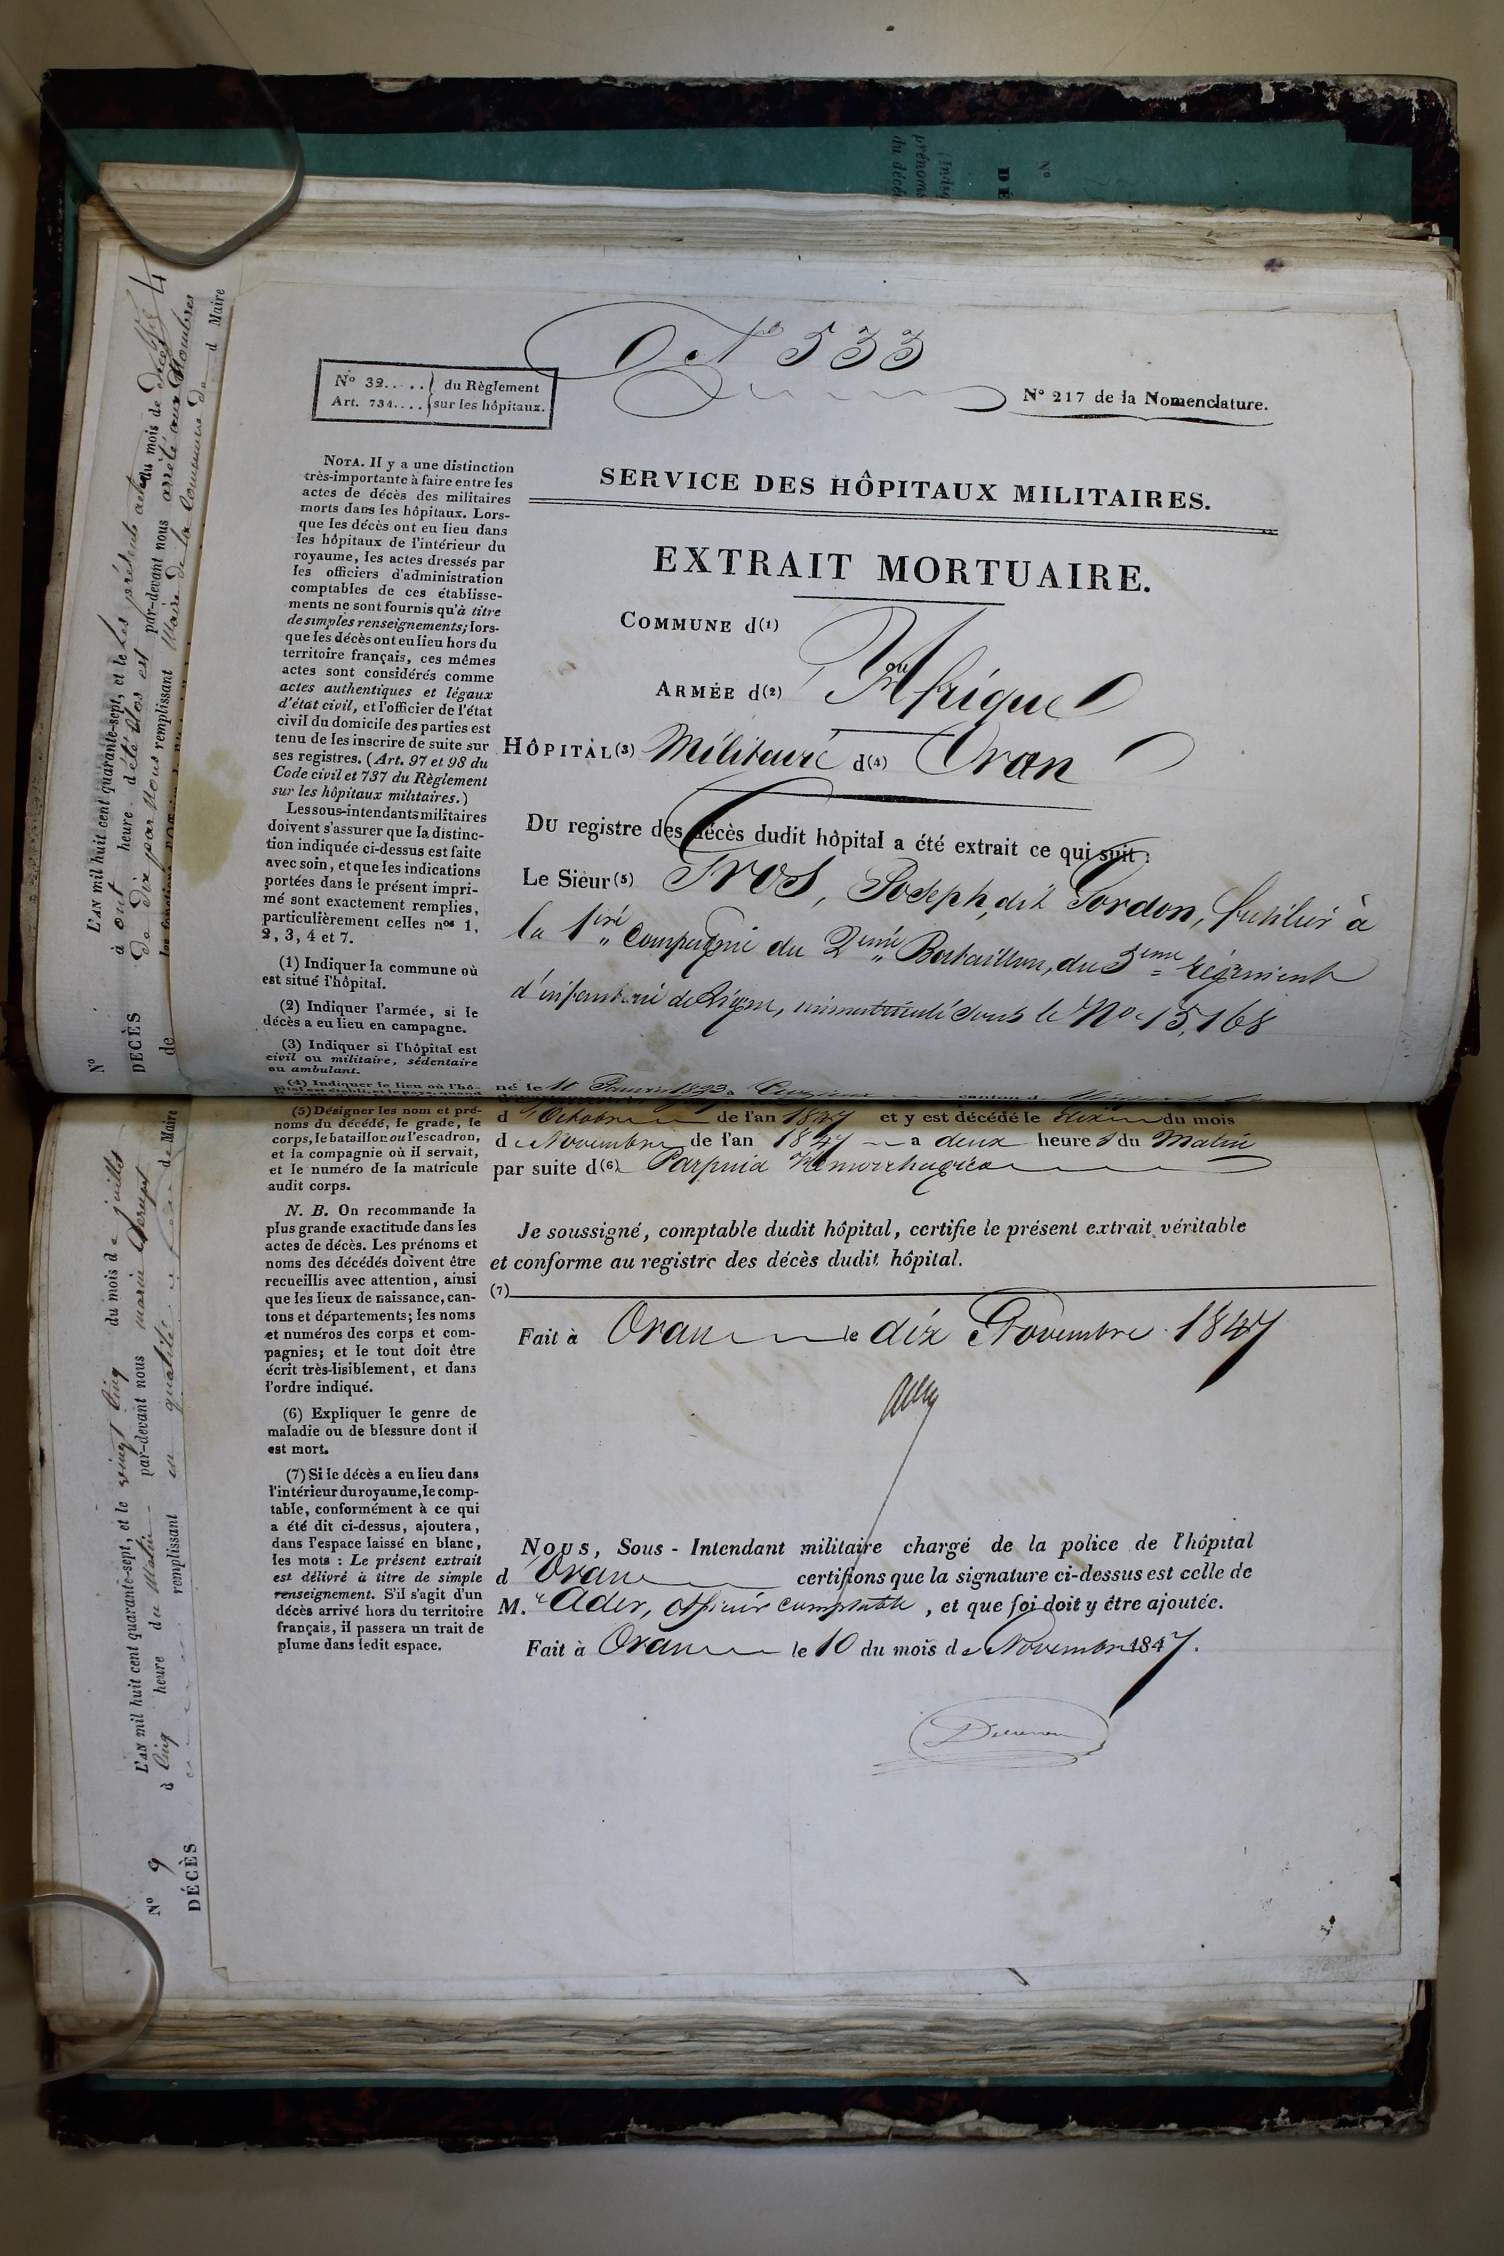 Nº 533
Nº 32..... du Règlement
Art. 734.... sur les hôpitaux.
Nº 217 de la Nomenclature.
SERVICE DES HÔPITAUX MILITAIRES.
EXTRAIT MORTUAIRE.
COMMUNE d(1)
ARMÉE d(2) Afrique
HÔPITAL(3) Militaire d(4) Oran
Du registre des décès dudit hôpital a été extrait ce qui suit :
Le Sieur(5) Gros, Joseph, dit Gordon, fusilier à
la 1ère Compagnie du 2ème Bataillon, du 5ème régiment
d'infanterie de Ligne, immatriculé sous le Nº 15,168
né le 10 Janvier 1823 à
d' Octobre de l'an 1847 et y est décédé le dix du mois
d e Novembre de l'an 1847 a deux heures du Matin
par suite d(6) Purpura Hémorrhagica
Je soussigné, comptable dudit hôpital, certifie le présent extrait véritable
et conforme au registre des décès dudit hôpital.
(7)
Fait à Oran le dix Novembre 1847
Ader
NOUS, Sous-Intendant militaire chargé de la police de l'hôpital
d' Oran certifions que la signature ci-dessus est celle de
M. Ader, officier comptable, et que foi doit y être ajoutée.
Fait à Oran le 10 du mois d e Novembre 1847.
NOTA. Il y a une distinction
très-importante à faire entre les
actes de décès des militaires
morts dans les hôpitaux. Lors-
que les décès ont eu lieu dans
les hôpitaux de l'intérieur du
royaume, les actes dressés par
les officiers d'administration
comptables de ces établisse-
ments ne sont fournis qu'à titre
de simples renseignements; lors-
que les décès ont eu lieu hors du
territoire français, ces mêmes
actes sont considérés comme
actes authentiques et légaux
d'état civil, et l'officier de l'état
civil du domicile des parties est
tenu de les inscrire de suite sur
ses registres. (Art. 97 et 98 du
Code civil et 737 du Règlement
sur les hôpitaux militaires.)
Les sous-intendants militaires
doivent s'assurer que la distinc-
tion indiquée ci-dessus est faite
avec soin, et que les indications
portées dans le présent impri-
mé sont exactement remplies,
particulièrement celles nos 1,
2, 3, 4 et 7.
(1) Indiquer la commune où
est situé l'hôpital.
(2) Indiquer l'armée, si le
décès a eu lieu en campagne.
(3) Indiquer si l'hôpital est
civil ou militaire, sédentaire
ou ambulant.
(4) Indiquer le lieu où l'hô-
pital est établi, et le pays, quand
(5) Désigner les nom et pré-
noms du décédé, le grade, le
corps, le bataillon ou l'escadron,
et la compagnie où il servait,
et le numéro de la matricule
audit corps.
N. B. On recommande la
plus grande exactitude dans les
actes de décès. Les prénoms et
noms des décédés doivent être
recueillis avec attention, ainsi
que les lieux de naissance, can-
tons et départements; les noms
et numéros des corps et com-
pagnies; et le tout doit être
écrit très-lisiblement, et dans
l'ordre indiqué.
(6) Expliquer le genre de
maladie ou de blessure dont il
est mort.
(7) Si le décès a eu lieu dans
l'intérieur du royaume, le comp-
table, conformément à ce qui
a été dit ci-dessus, ajoutera,
dans l'espace laissé en blanc,
les mots : Le présent extrait
est délivré à titre de simple
renseignement. S'il s'agit d'un
décès arrivé hors du territoire
français, il passera un trait de
plume dans ledit espace.
Nº
DÉCÈS
de
L'AN mil huit cent quarante-sept, et le
à heure d du mois de
par-devant nous
remplissant
d Maire
Nº 9
DÉCÈS
L'AN mil huit cent quarante-sept, et le vingt cinq du mois de juillet
à cinq heure du Matin par-devant nous marie
remplissant de Maire
Nº
DÉ
(Indiq
prénoms
du décé